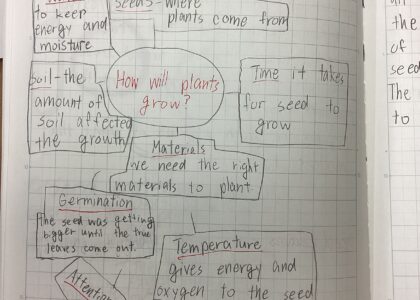 to keep
energy and
moisture
seeds-where
plants come from
How will plants
grow?
Soil-the
amount of
soil affected
the growth
Time it takes
for seed to
grow
Materials
we need the right
materials to plant
Germination
The seed was getting
bigger until the true
leaves come out.
Temperature
gives energy and
oxygen to the seed
Attention
the
of
seed
The
to